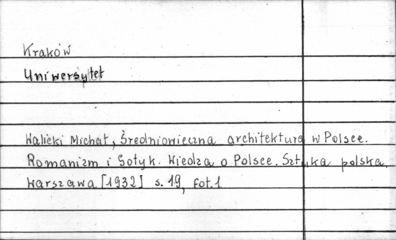 Kraków
Uniwersytet
Walicki Michał, Średniowieczna architektura w Polsce.
Romanizm i Gotyk. Wiedza o Polsce. Sztuka polska.
Warszawa [1932] s. 19, fot. 1